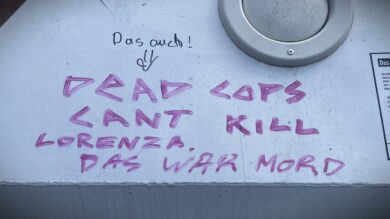 Das auch!
DEAD COPS
CANT KILL
LORENZA.
DAS WAR MORD
Das